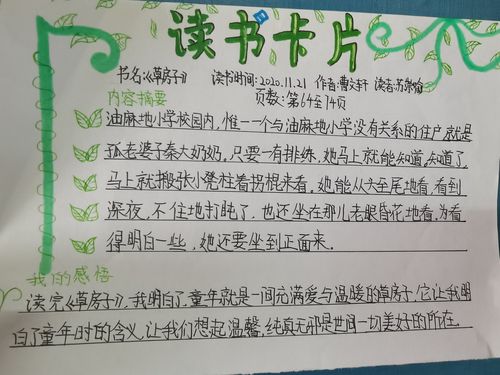 读书卡片
书名:《草房子》 读书时间:2020.11.21 作者:曹文轩 读者:苏
页数:第64至74页
内容摘要
油麻地小学校园内,惟一个与油麻地小学没有关系的住户就是
孤老婆子秦大奶奶,只要一有排练,她马上就能知道,知道了,
马上就搬张小凳拄着拐棍来看,她能从头至尾地看,看到
深夜,不住地打盹了,也还坐在那儿老眼昏花地看,为看
得明白一些,她还要坐到正面来.
我的感悟
读完《草房子》,我明白了童年就是一间充满爱与温暖的草房子.它让我明
白了童年时的含义,让我们想起温馨,纯真无邪是世间一切美好的所在.